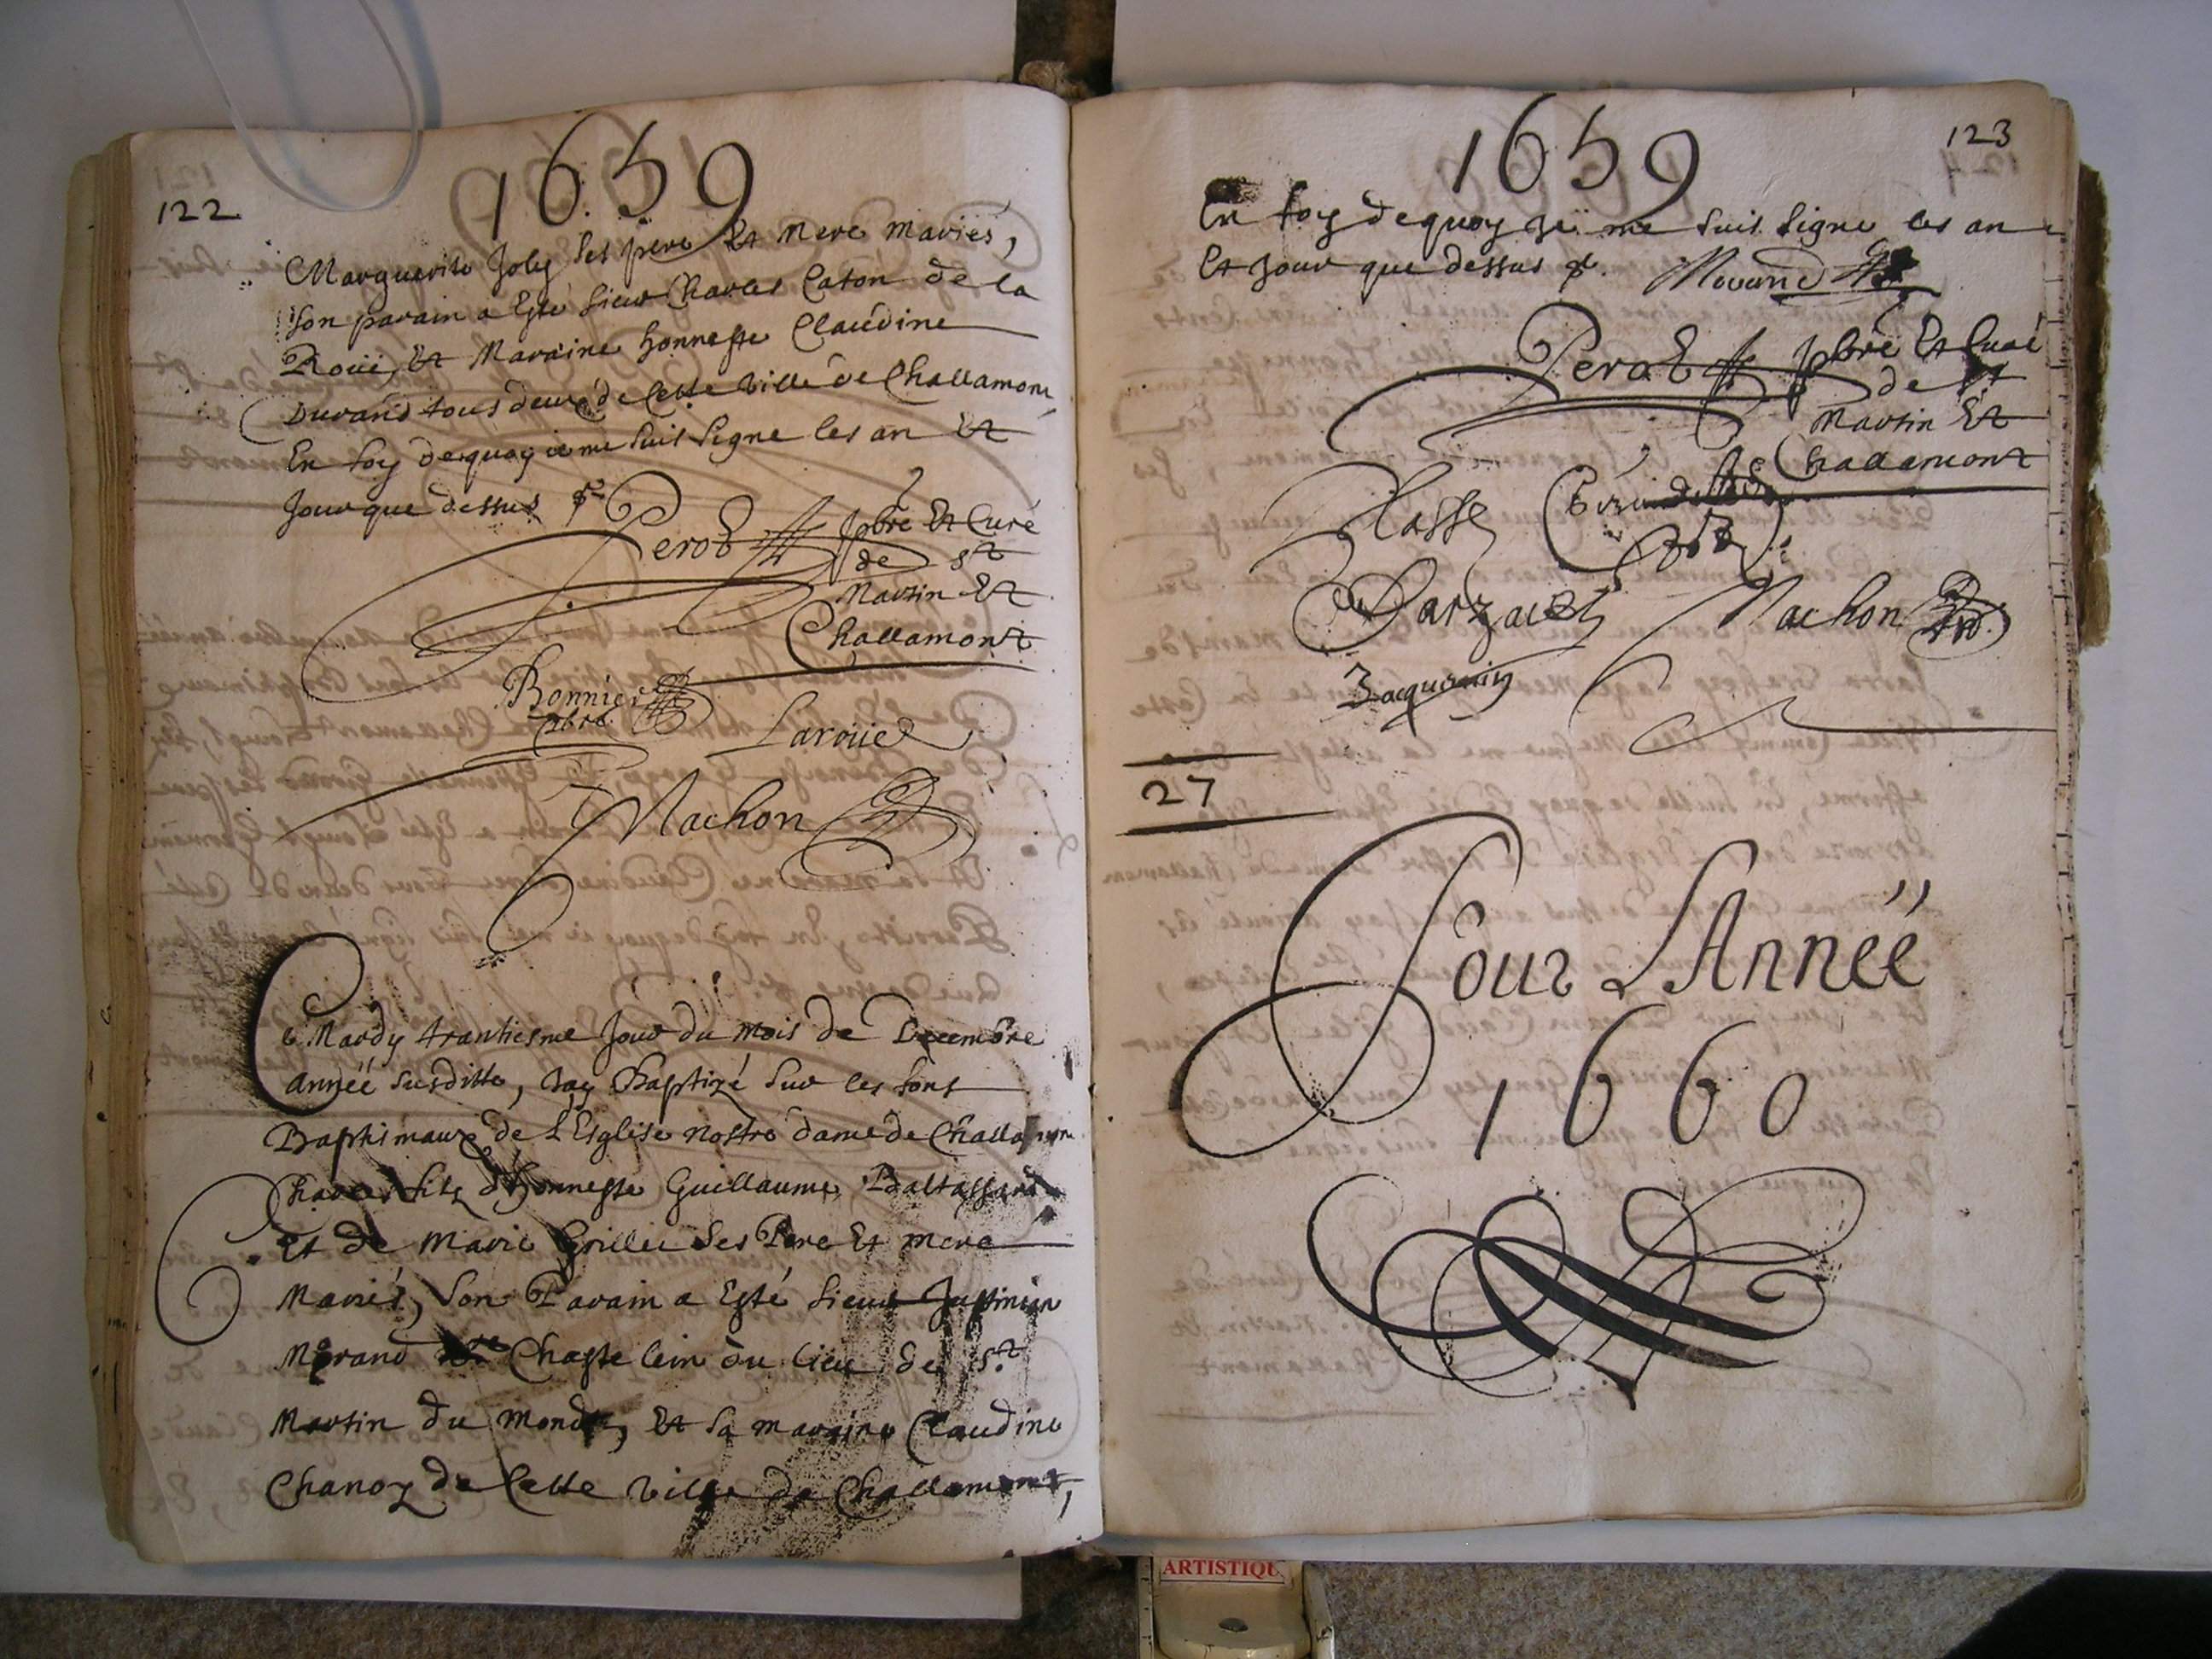 122
1659
Marguerite Joly ses pere Et Mere mariés,
son parain a Esté sieur Charles Caton de la
Roüe, Et Maraine honneste Claudine
Durand tous deux de Cette ville de Challamont
En foy dequoy ie me suis signe les an Et
Jour que dessus
Perot pbre Et Curé
de St
Martin Et
Challamont
Bonnier
pbre
Laroüe
Machon
Ce Mardy trantiesme Jour du mois de Decembre
Anneé susditte, Jay Baptizé sur les fons
Baptimaux de L'Esglise nostre dame de Challamont
Charles fils d'honneste Guillaume Baltassard
Et de Marie Grillet ses Pere Et mere
Mariés, Son Parain a Esté sieur Justinien
Morand Chastelein du lieu de St
Martin du Monde, Et sa maraine Claudine
Chanoz de Cette ville de Challamont,
123
1659
En foy dequoy Je me suis signe les an
Et Jour que dessus Morand
Perot pbre Et Curé
de St
Martin Et
Challamont
Machon
Jacquemin
27
Pour L'Anneé
1660
ARTISTIQU